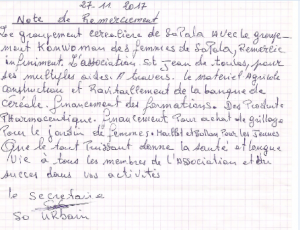 27.11 2017
Note de Remerciement
Le groupement céréalière de SoPala avec le groupe-
ment Konwoman des femmes de SoPala, Remercie
infiniment. L'association St Jean de toulas, pour
ses multiples aides. A travers. le materiel Agricole
construction et Ravitaillement de la banque de
céréale. financement des formations. Des Produits
Pharmaceutique. financement Pour achat de grillage
Pour le jardin de femmes. Maillot et Ballon Pour les Jeunes
Que le tout Puissant donne la santé et longue
Vie à tous les membres de l'Association et du
succes dans vos activités
le Secretaire
So URbain